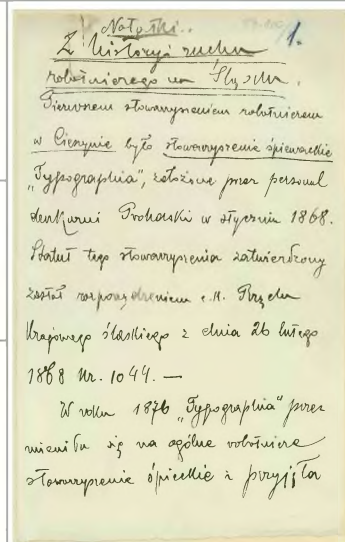 Notatki..
1.
Z historyi ruchu
robotniczego na Śląsku.
Pierwszem stowarzyszeniem robotniczem
w Cieszynie było stowarzyszenie śpiewackie
„Typographia”, założone przez personal
drukarni Prohaski w styczniu 1868.
Statut tego stowarzyszenia zatwierdzony
został rozporządzeniem c.K. Rządu
Krajowego śląskiego z dnia 26 lutego
1868 Nr. 1044. —
W roku 1876 „Typographia” prze
mieniła się na ogólne robotnicze
stowarzyszenie śpiackie i przyjęła